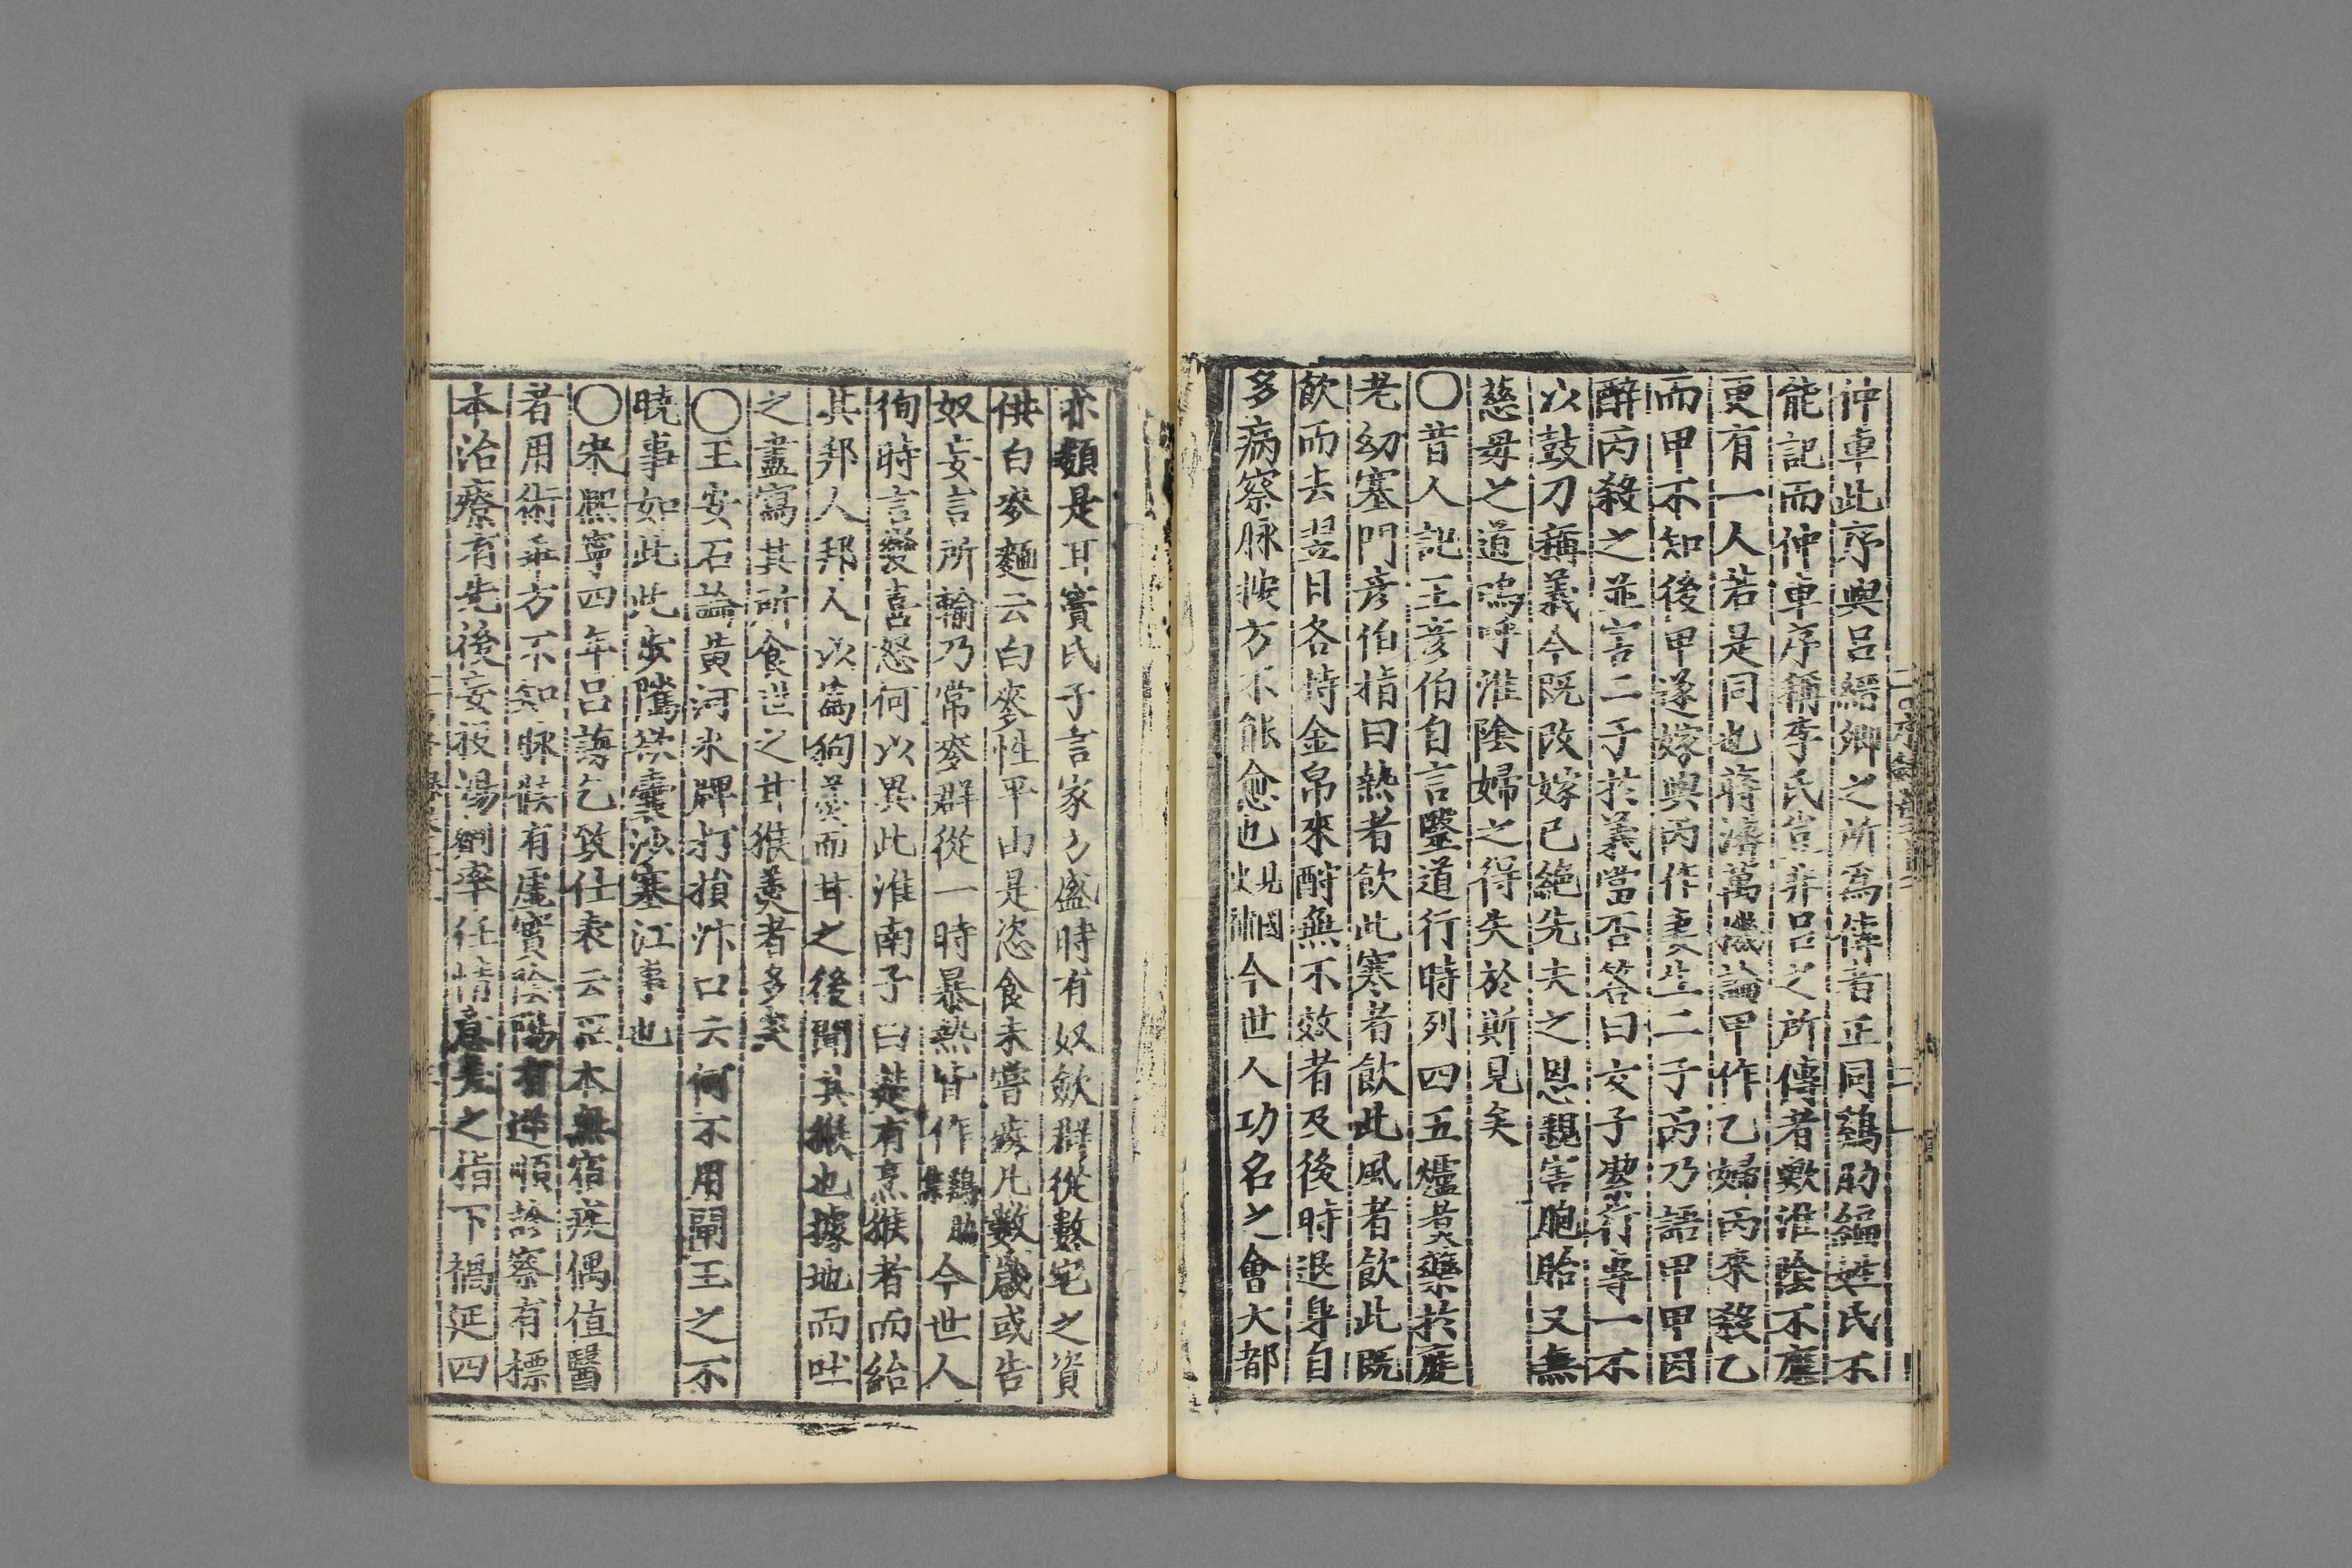 仲車此序與呂縉卿之所為傳者正同鷄肋編姓氏不
能記而仲車序稱李氏豈非呂之所傳者歟淮陰不應
更有一人若是同也蔣濟萬機論甲作乙婦丙來殺乙
而甲不知後甲遂嫁與丙作妻生二子丙乃語甲甲因
醉丙殺之並害二子於義當否答曰女子專一不
以鼓刀稱義今既改嫁已絶先夫之恩親害胞胎又無
慈毋之道嗚呼淮陰婦之得失於斯見矣
〇昔人記王彦伯自言醫道行時列四五爐煮藥於庭
老幼塞門彦伯指曰熱者飲此寒者飲此風者飲此既
飲而去翌日各持金帛來酧無不效者及後時退身自
多病察脉按方不能愈也見國史補今世人功名之會大都
亦類是耳竇氏子言家方盛時有奴歛群從數宅之資
供白麥麵云白麥性平由是恣食未嘗疾凡數歲或告
奴妄言所輸乃常麥群從一時暴熱皆作鷄肋集今世人
徇時言變喜怒何以異此淮南子曰楚有烹猴者而紿
其邦人邦人以為狗羮而甘之後聞其猴也據地而吐
之盡寫其所食世之甘猴羮者多矣
〇王安石論黃河氷牌打損汴口云何不用閘王之不
曉事如此此安隲欲囊沙塞江事也
〇宋熙寧四年呂誨乞致仕表云臣本無宿疾偶值醫
者用術乖方不知脉候有虛實陰陽有逆順診察有標
本治療有先後妄投湯劑率任情意差之指下禍延四